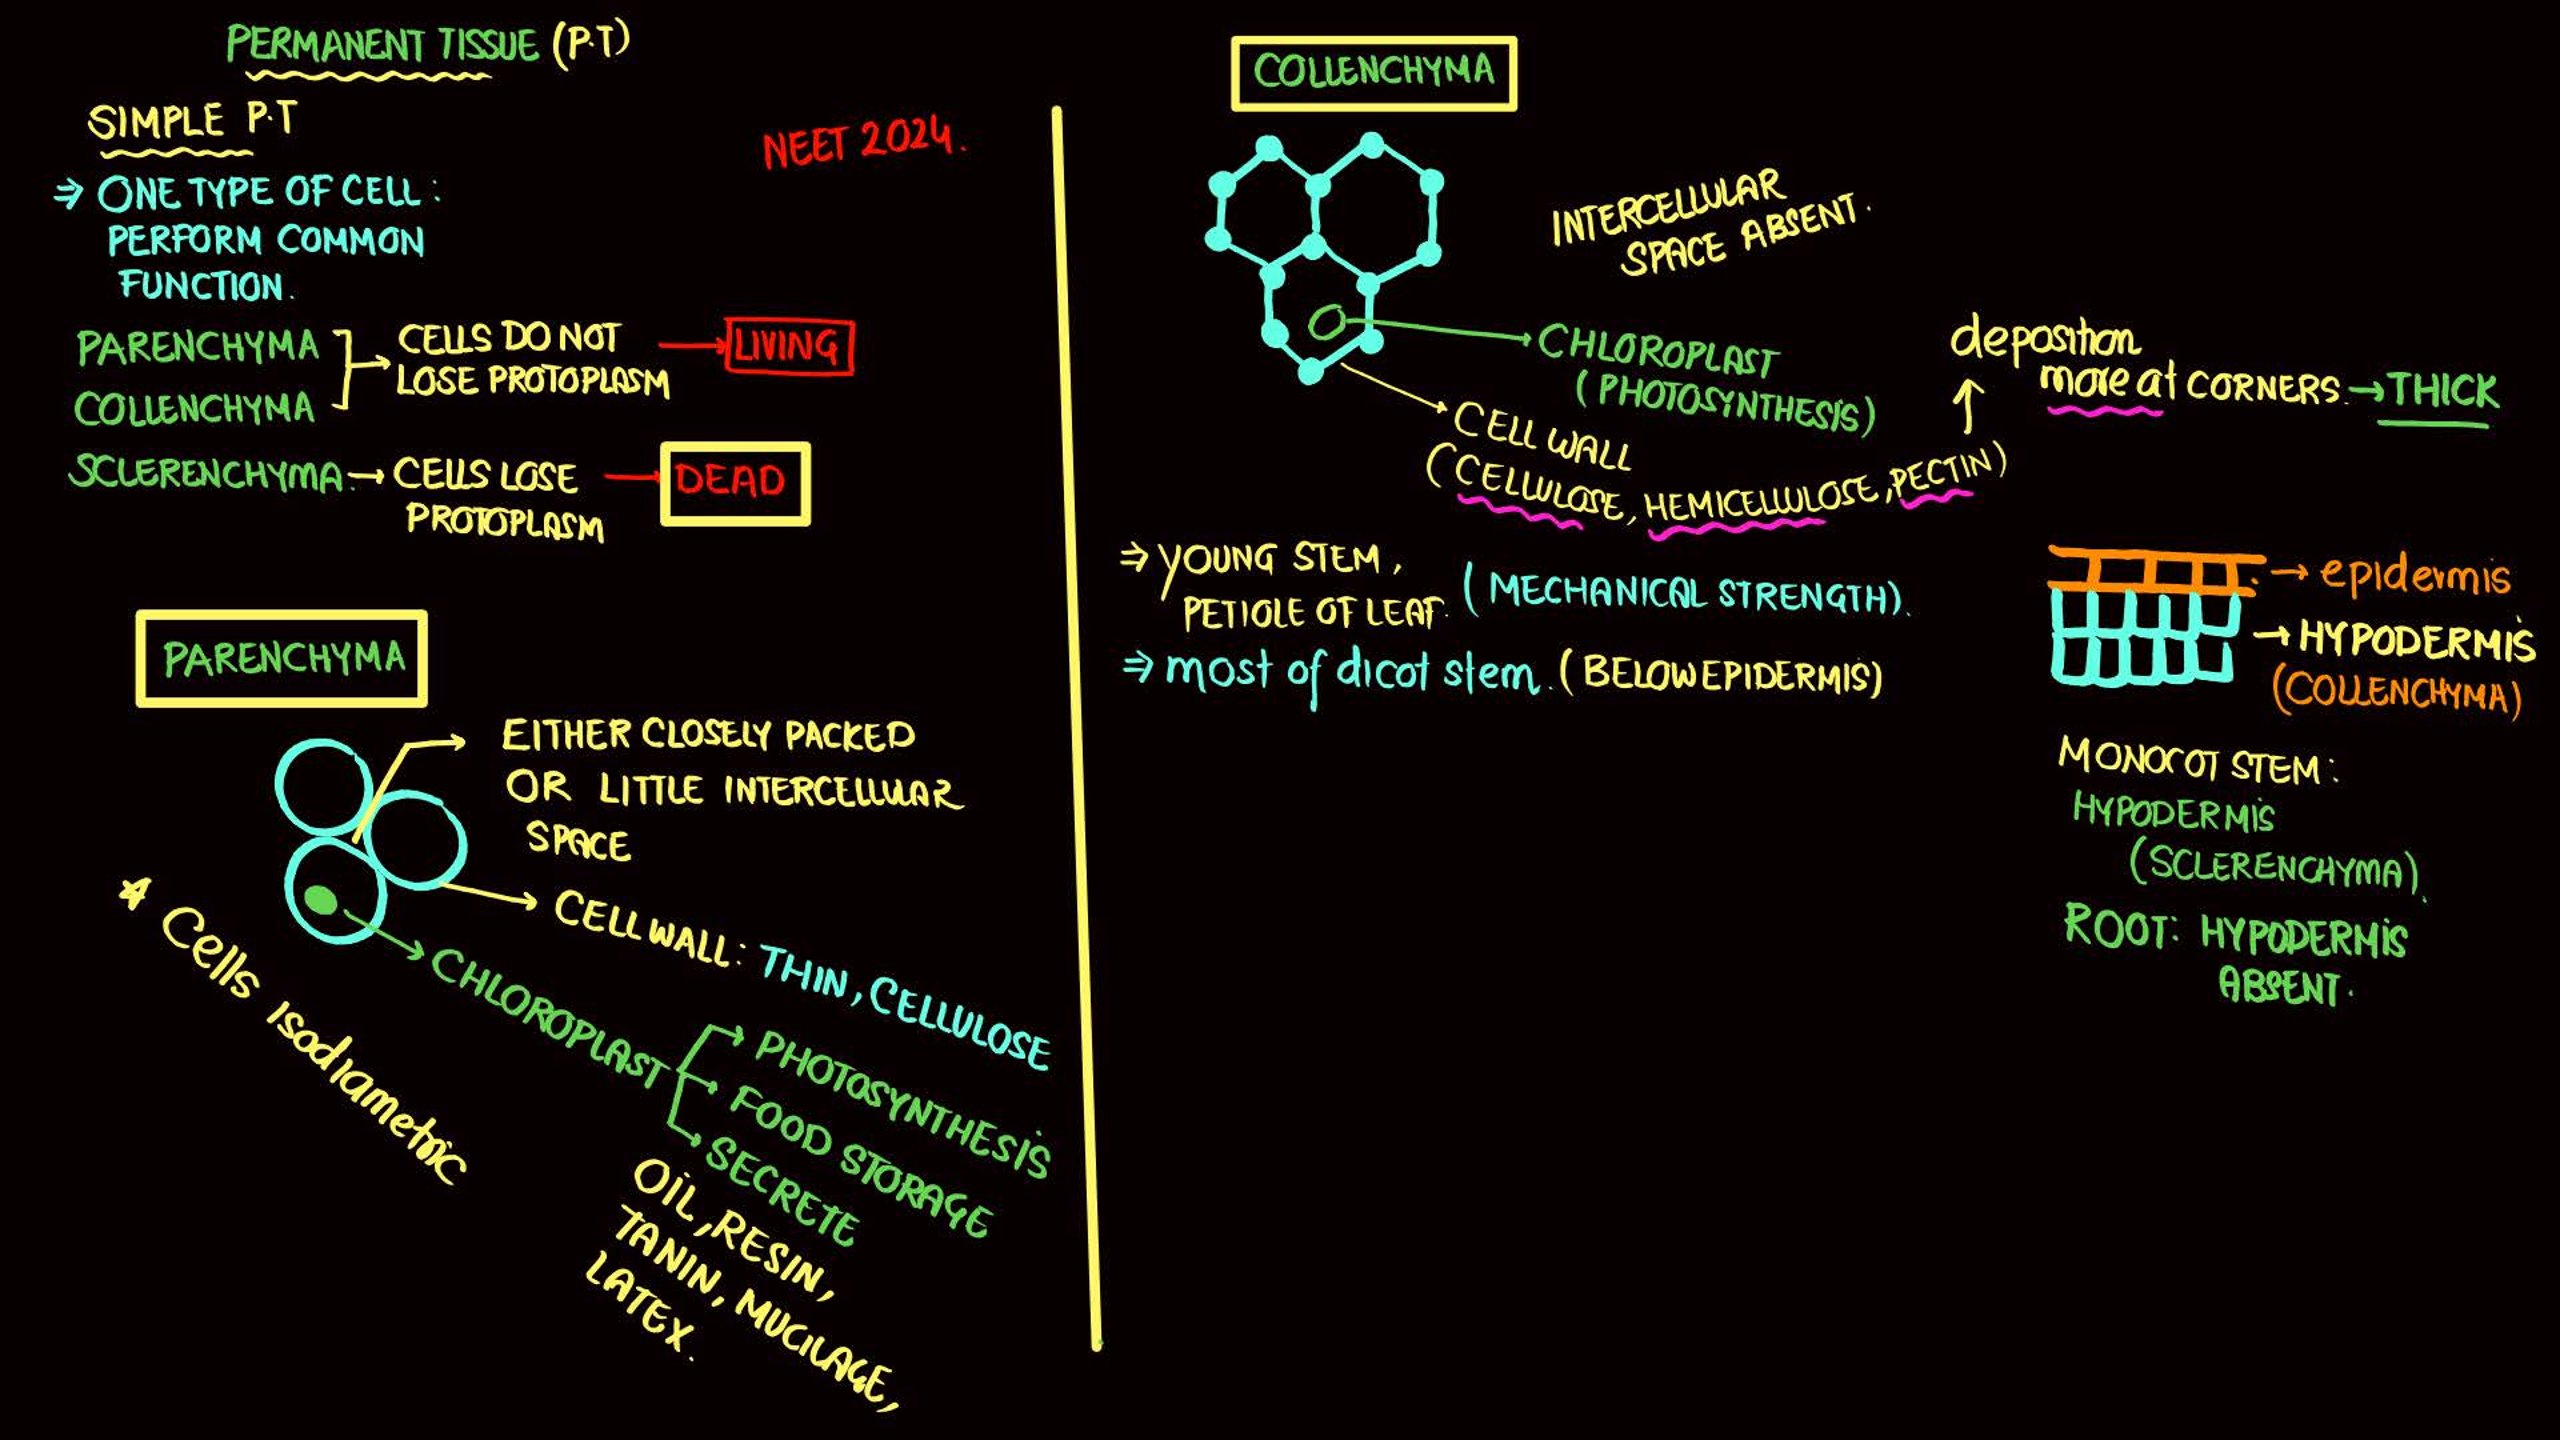 PERMANENT TISSUE (P.T)
SIMPLE P.T
NEET 2024.
⇒ ONE TYPE OF CELL:
PERFORM COMMON
FUNCTION.
PARENCHYMA
COLLENCHYMA
→ CELLS DO NOT
LOSE PROTOPLASM
→ LIVING
SCLERENCHYMA. → CELLS LOSE
PROTOPLASM
→ DEAD
PARENCHYMA
EITHER CLOSELY PACKED
OR LITTLE INTERCELLULAR
SPACE
CELL WALL: THIN, CELLULOSE
CHLOROPLAST
PHOTOSYNTHESIS
FOOD STORAGE
SECRETE
OIL, RESIN,
TANIN, MUCILAGE,
LATEX.
* Cells isodiametric
COLLENCHYMA
INTERCELLULAR
SPACE ABSENT.
CHLOROPLAST
(PHOTOSYNTHESIS)
CELL WALL
(CELLULOSE, HEMICELLULOSE, PECTIN)
deposition
more at CORNERS. → THICK
⇒ YOUNG STEM,
PETIOLE OF LEAF. (MECHANICAL STRENGTH).
⇒ most of dicot stem. (BELOW EPIDERMIS)
→ epidermis
→ HYPODERMIS
(COLLENCHYMA)
MONOCOT STEM:
HYPODERMIS
(SCLERENCHYMA).
ROOT: HYPODERMIS
ABSENT.